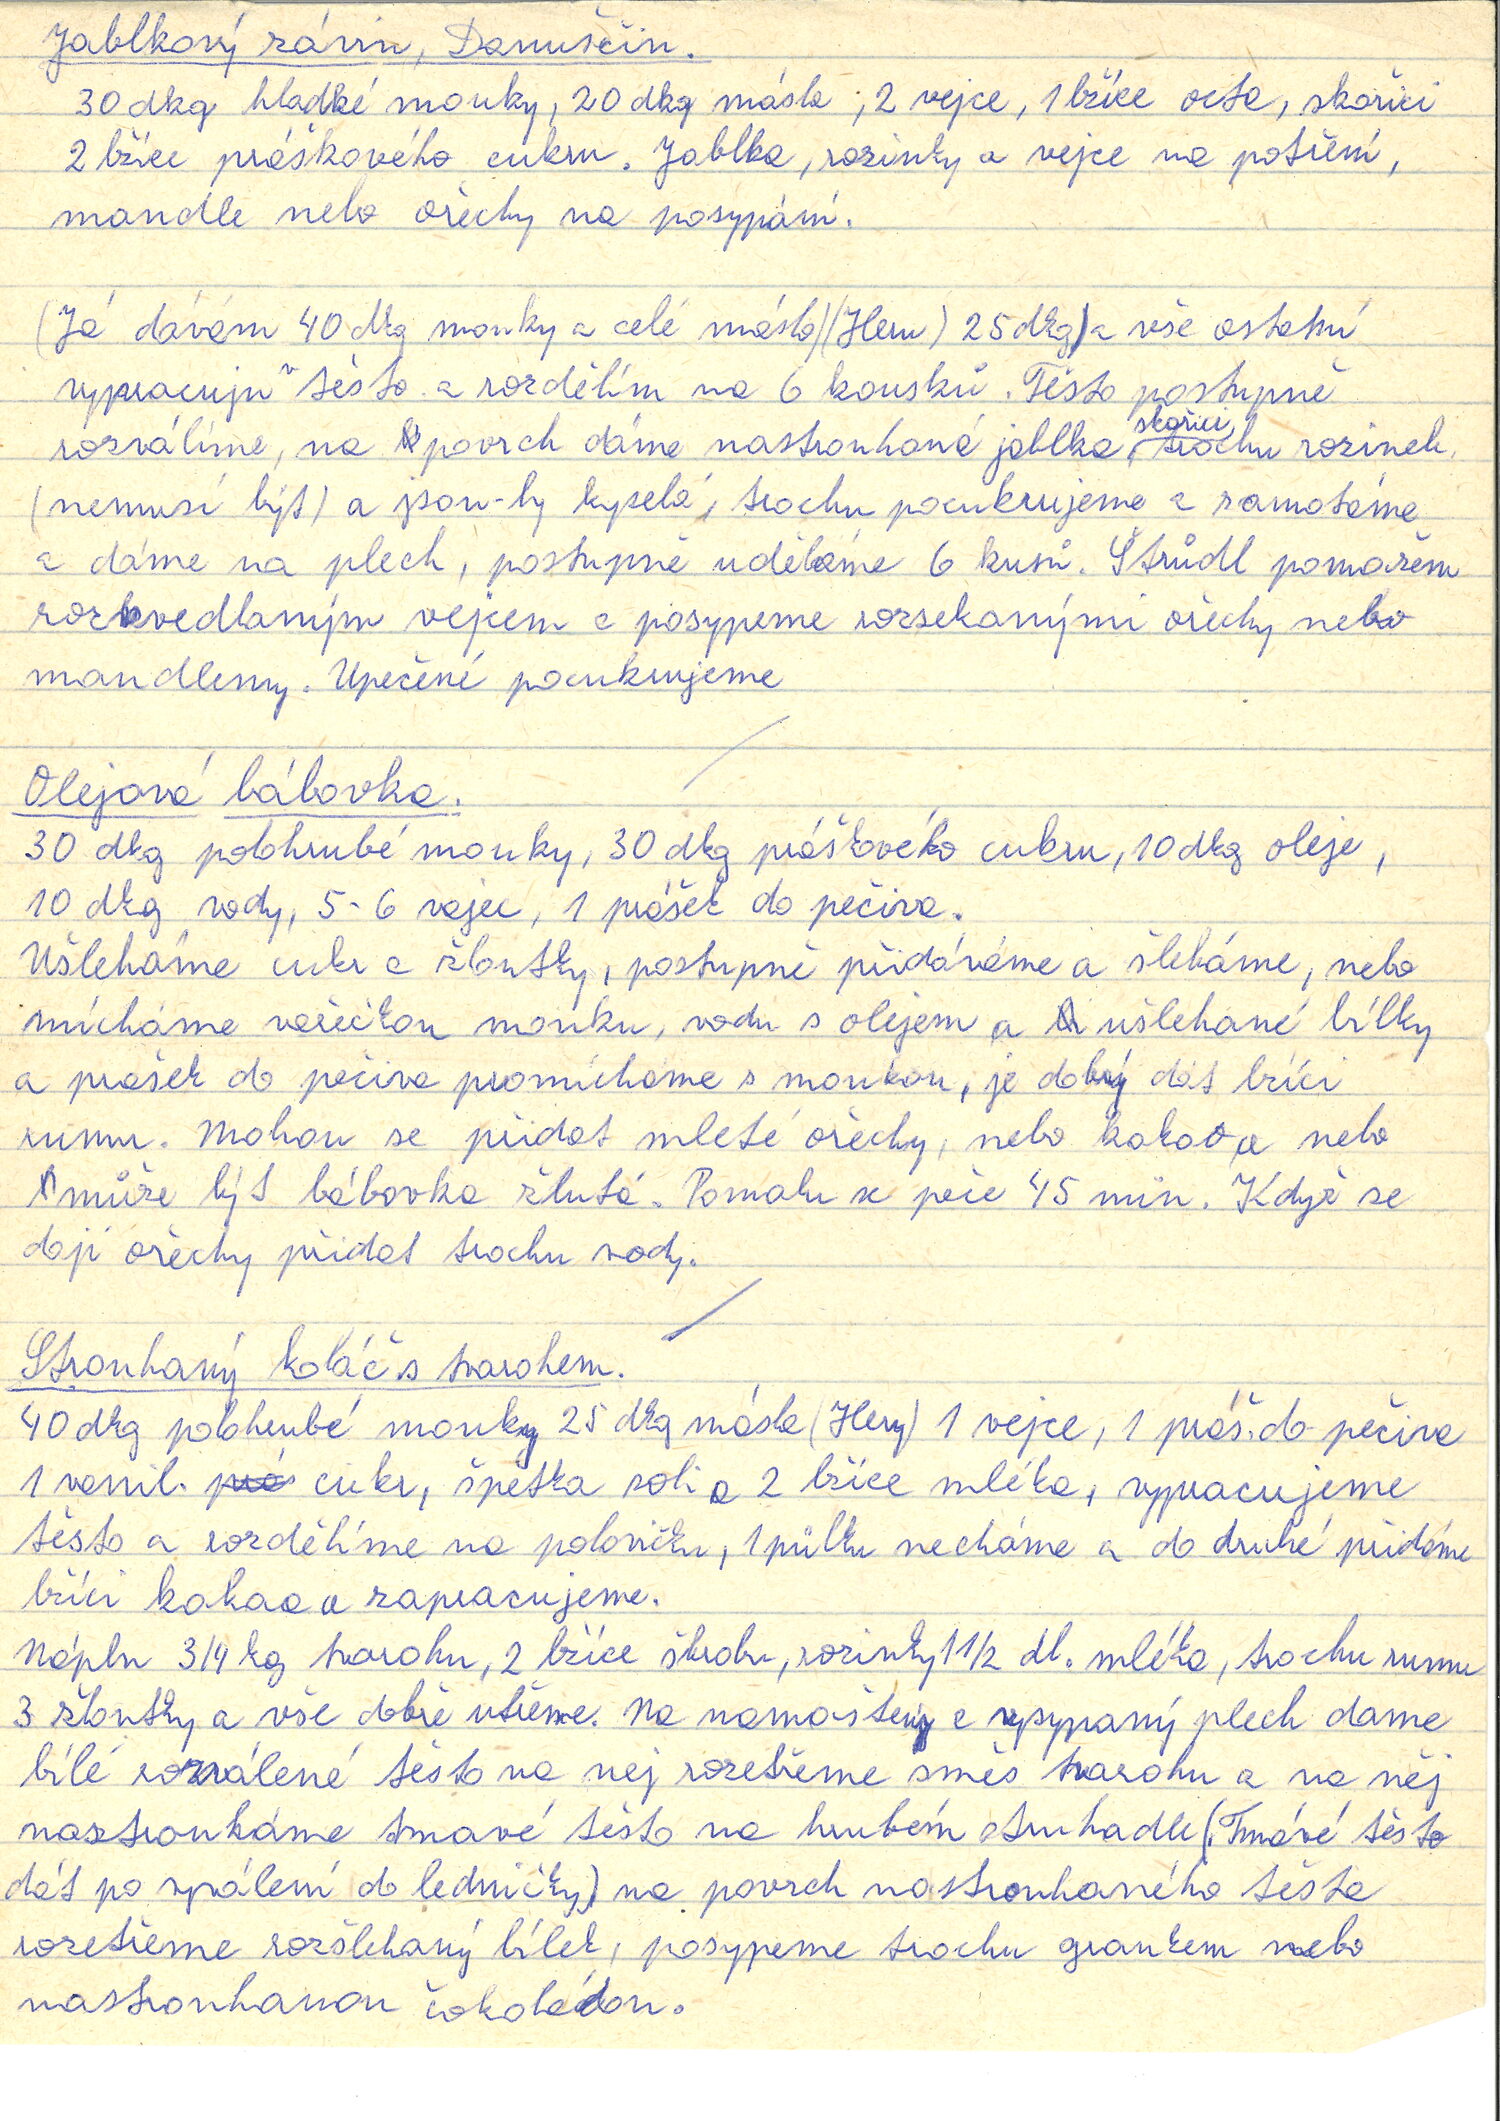 Jablkový závin, Danuščin.
30 dkg hladké mouky, 20 dkg másla, 2 vejce, 1 lžíce octa, skořici
2 lžíce práškového cukru. Jablka, rozinky a vejce na potření,
mandle nebo ořechy na posypání.
(Já dávám 40 dkg mouky a celé máslo)(Heru) 25 dkg) a vše ostatní
vypracuju v těsto a rozdělím na 6 kousků. Těsto postupně
skořici,
rozválíme, na povrch dáme nastrouhaná jablka, trochu rozinek,
(nemusí být) a jsou-ly kyselá, trochu pocukrujeme a zamotáme
a dáme na plech, postupně uděláme 6 kusů. Štrůdl pomažem
rozkvedlaným vejcem a posypeme rozsekanými ořechy nebo
mandlemy. Upečené pocukrujeme
Olejová bábovka.
30 dkg polohrubé mouky, 30 dkg práškového cukru, 10 dkg oleje,
10 dkg vody, 5-6 vajec, 1 prášek do pečiva.
Ušleháme cukr a žloutky, postupně přidáváme a šleháme, nebo
mícháme vařečkou mouku, vodu s olejem a ušlehané bílky
a prašek do pečiva promícháme s moukou, je dobrý dát lžíci
rumu. Mohou se přidat mleté ořechy, nebo kakao a nebo
může být bábovka žlutá. Pomalu se peče 45 min. Když se
dají ořechy přidat trochu vody.
Strouhaný koláč s tvarohem.
40 dkg polohrubé mouky 25 dkg másla (Hery) 1 vejce, 1 práš. do pečiva
1 vanil. cukr, špetka soli a 2 lžíce mléka, vypracujeme
těsto a rozdělíme na polovičku, 1 půlku necháme a do druhé přidáme
lžíci kakao a zapracujeme.
Náplň 3/4 kg tvarohu, 2 lžíce škrobu, rozinky 1 1/2 dl. mléka, trochu rumu
3 žloutky a vše dobře utřeme. Na namaštený a vysypaný plech dame
bílé rozválené těsto na nej rozetřeme směs tvarohu a na něj
nastrouháme tmavé těsto na hrubém struhadle (Tmavé těsto
dát po vyválení do ledničky) na povrch nastrouhaného těsta
rozetřeme rozšlehaný bílek, posypeme trochu grankem nebo
nastrouhanou čokoládou.